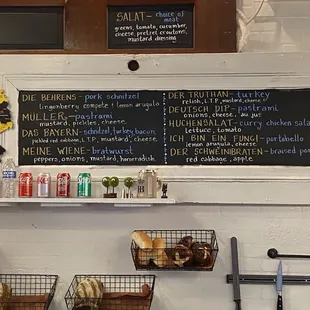 SALAT - choice of meat
greens, tomato, cucumber,
cheese, pretzel croutons
mustard dressing
DIE BEHRENS - pork schnitzel
lingonberry compote lemon arugula
MULLER - pastrami
mustard, pickles, cheese,
DAS BAYERN - schnitzel, turkey bacon
pickled red cabbage, mustard, cheese
MEINE WIENE - bratwurst
peppers, onions, mustard, horseradish
DER TRUTHAN - turkey
relish, L.T.P., mustard, cheese
DEUTSCH DIP - pastrami
onions, cheese, au jus
HUCHENSALAT - curry chicken salad
lettuce, tomato
ICH BIN EIN FUNGI - portobello
lemon arugula, cheese
DER SCHWEINBRATEN - braised pork
red cabbage, apple